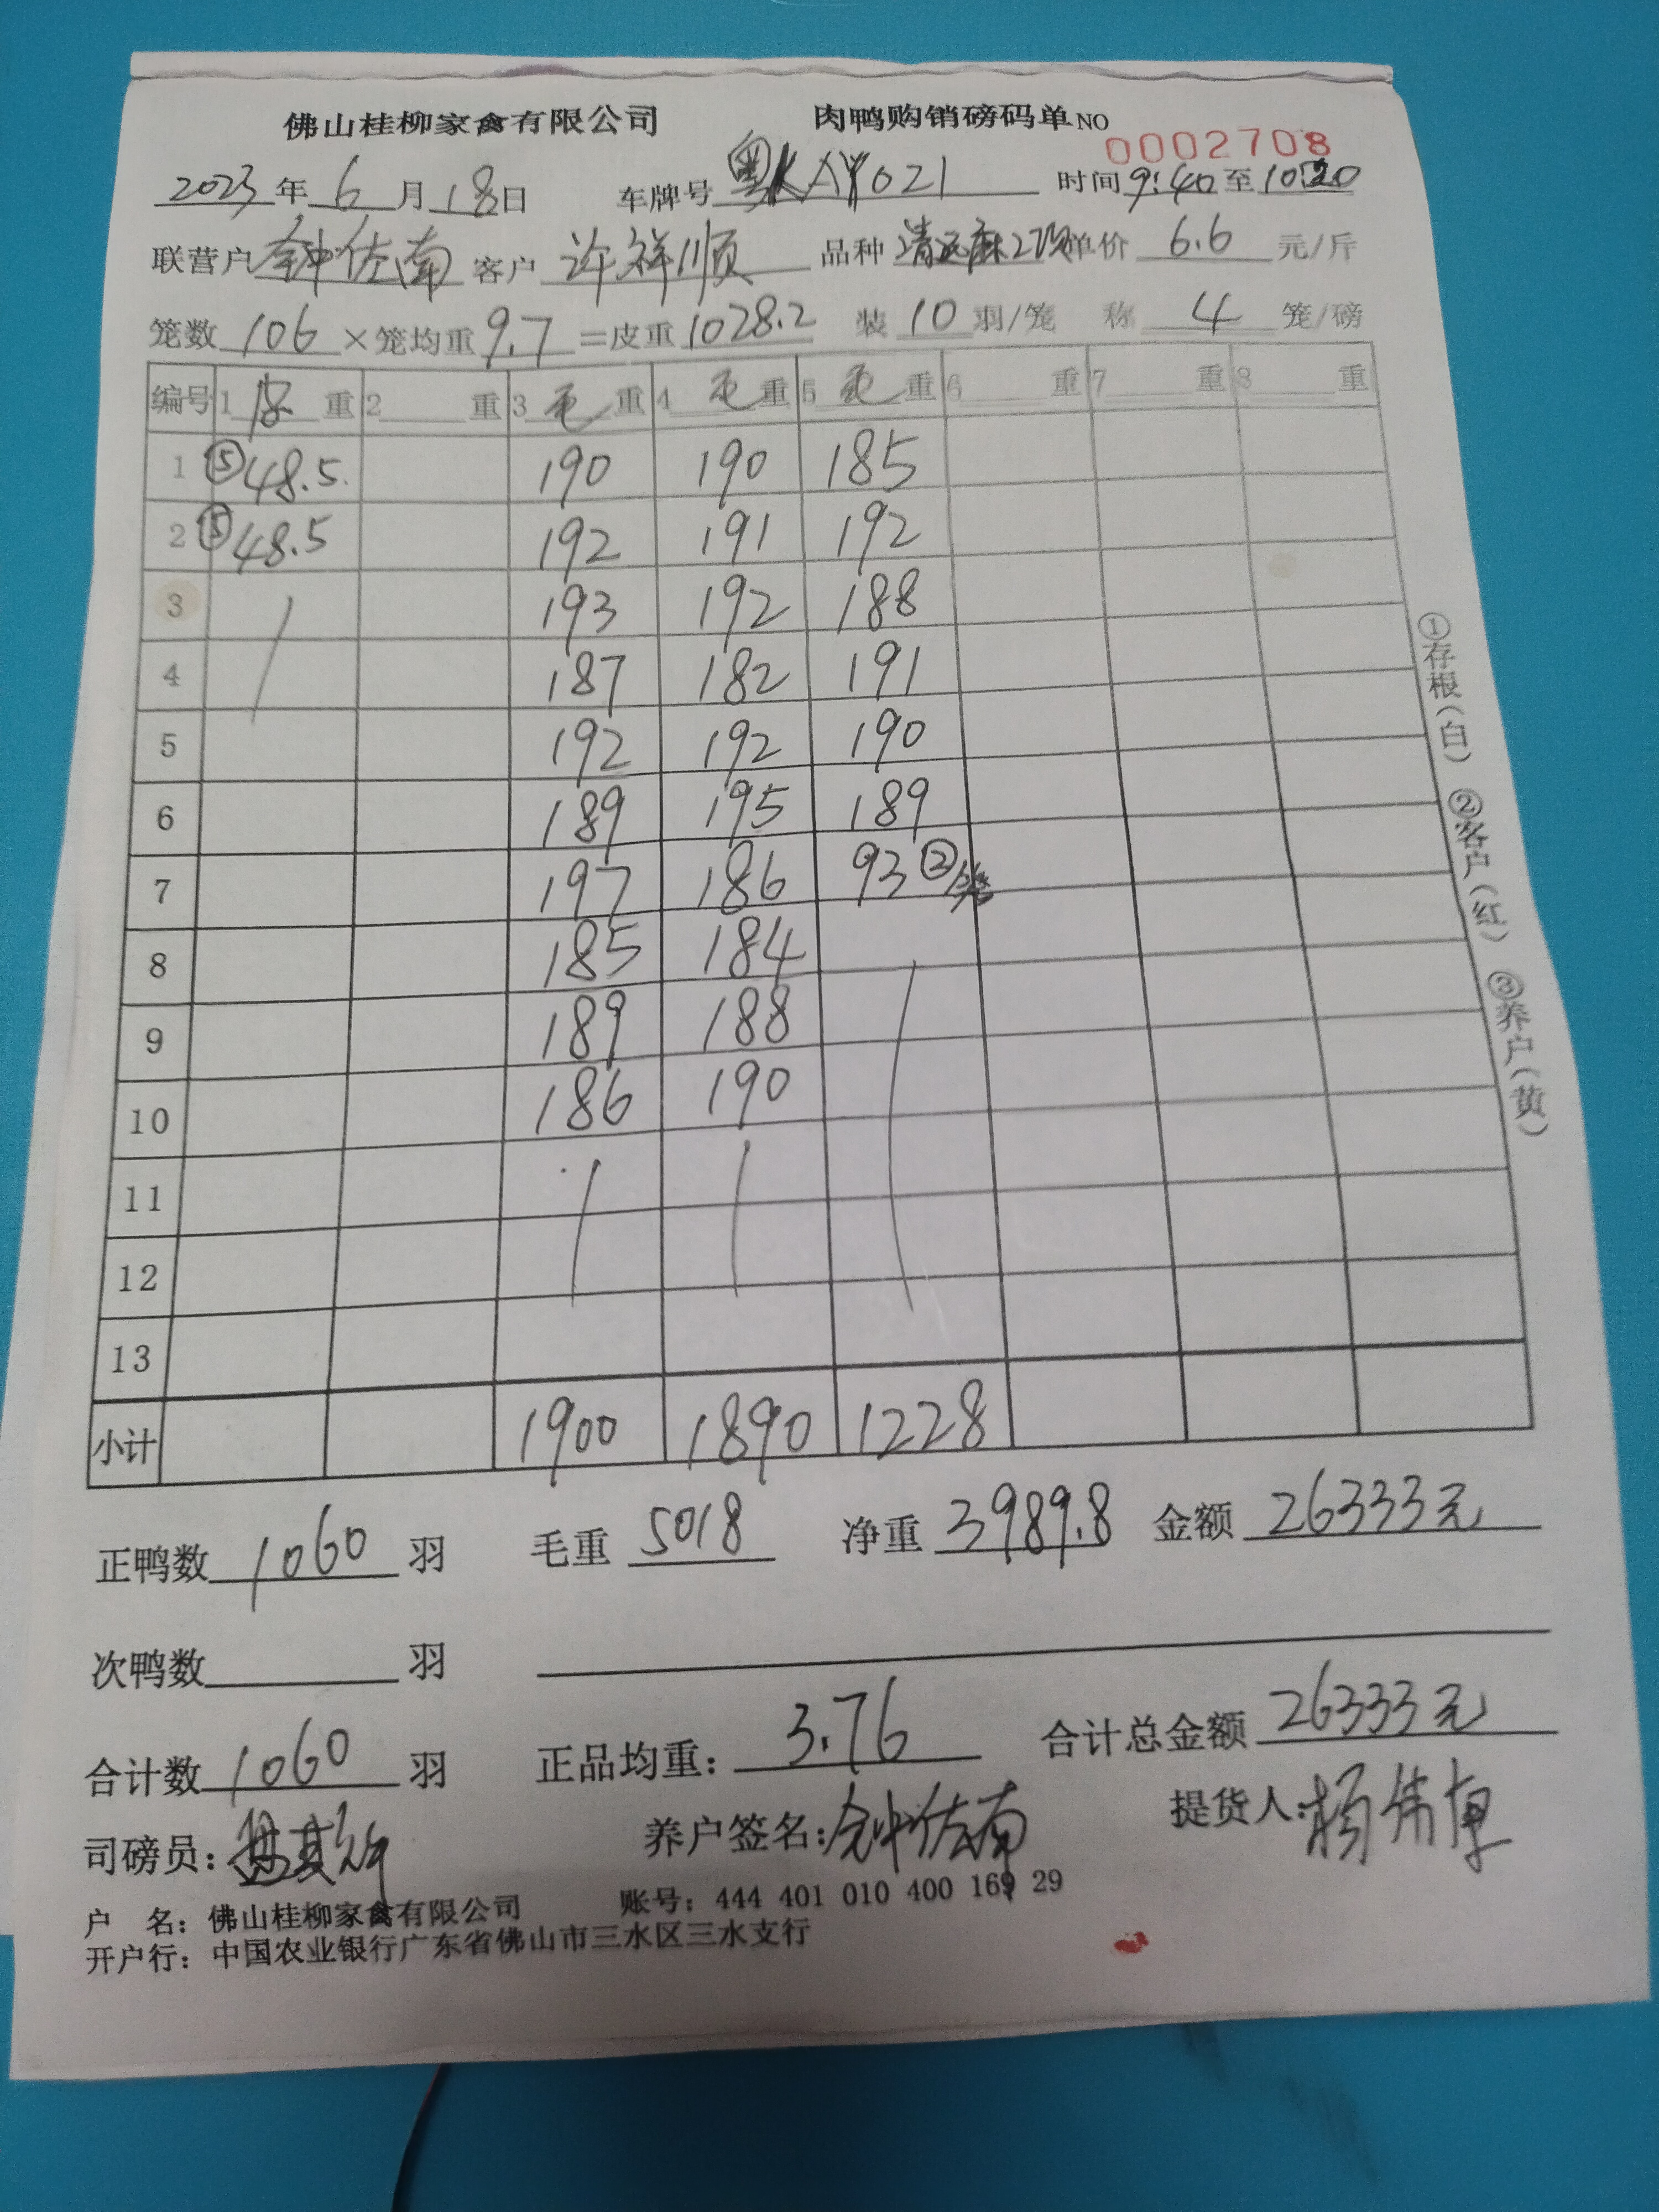 佛山桂柳家禽有限公司 肉鸭购销磅码单 NO 0002708
2023年6月18日 车牌号 粤KAY021 时间 9:40 至 10:20
联营户 钟佐南 客户 许祥顺 品种 清远麻 单价 6.6 元/斤
笼数 106 ×笼均重 9.7 =皮重 1028.2 装 10 羽/笼 称 4 笼/磅
编号 1 皮 重 2 重 3 毛 重 4 毛 重 5 毛 重 6 重 7 重 8 重
1 ⑤48.5 190 190 185
2 ⑤48.5 192 191 192
3 193 192 188
4 187 182 191
5 192 192 190
6 189 195 189
7 197 186 93 ②笼
8 185 184
9 189 188
10 186 190
11
12
13
小计 1900 1890 1228
正鸭数 1060 羽 毛重 5018 净重 3989.8 金额 26333元
次鸭数 羽
合计数 1060 羽 正品均重: 3.76 合计总金额 26333元
司磅员: 养户签名: 钟佐南 提货人:
户 名: 佛山桂柳家禽有限公司 账号: 444 401 010 400 169 29
开户行: 中国农业银行广东省佛山市三水区三水支行
①存根(白) ②客户(红) ③养户(黄)